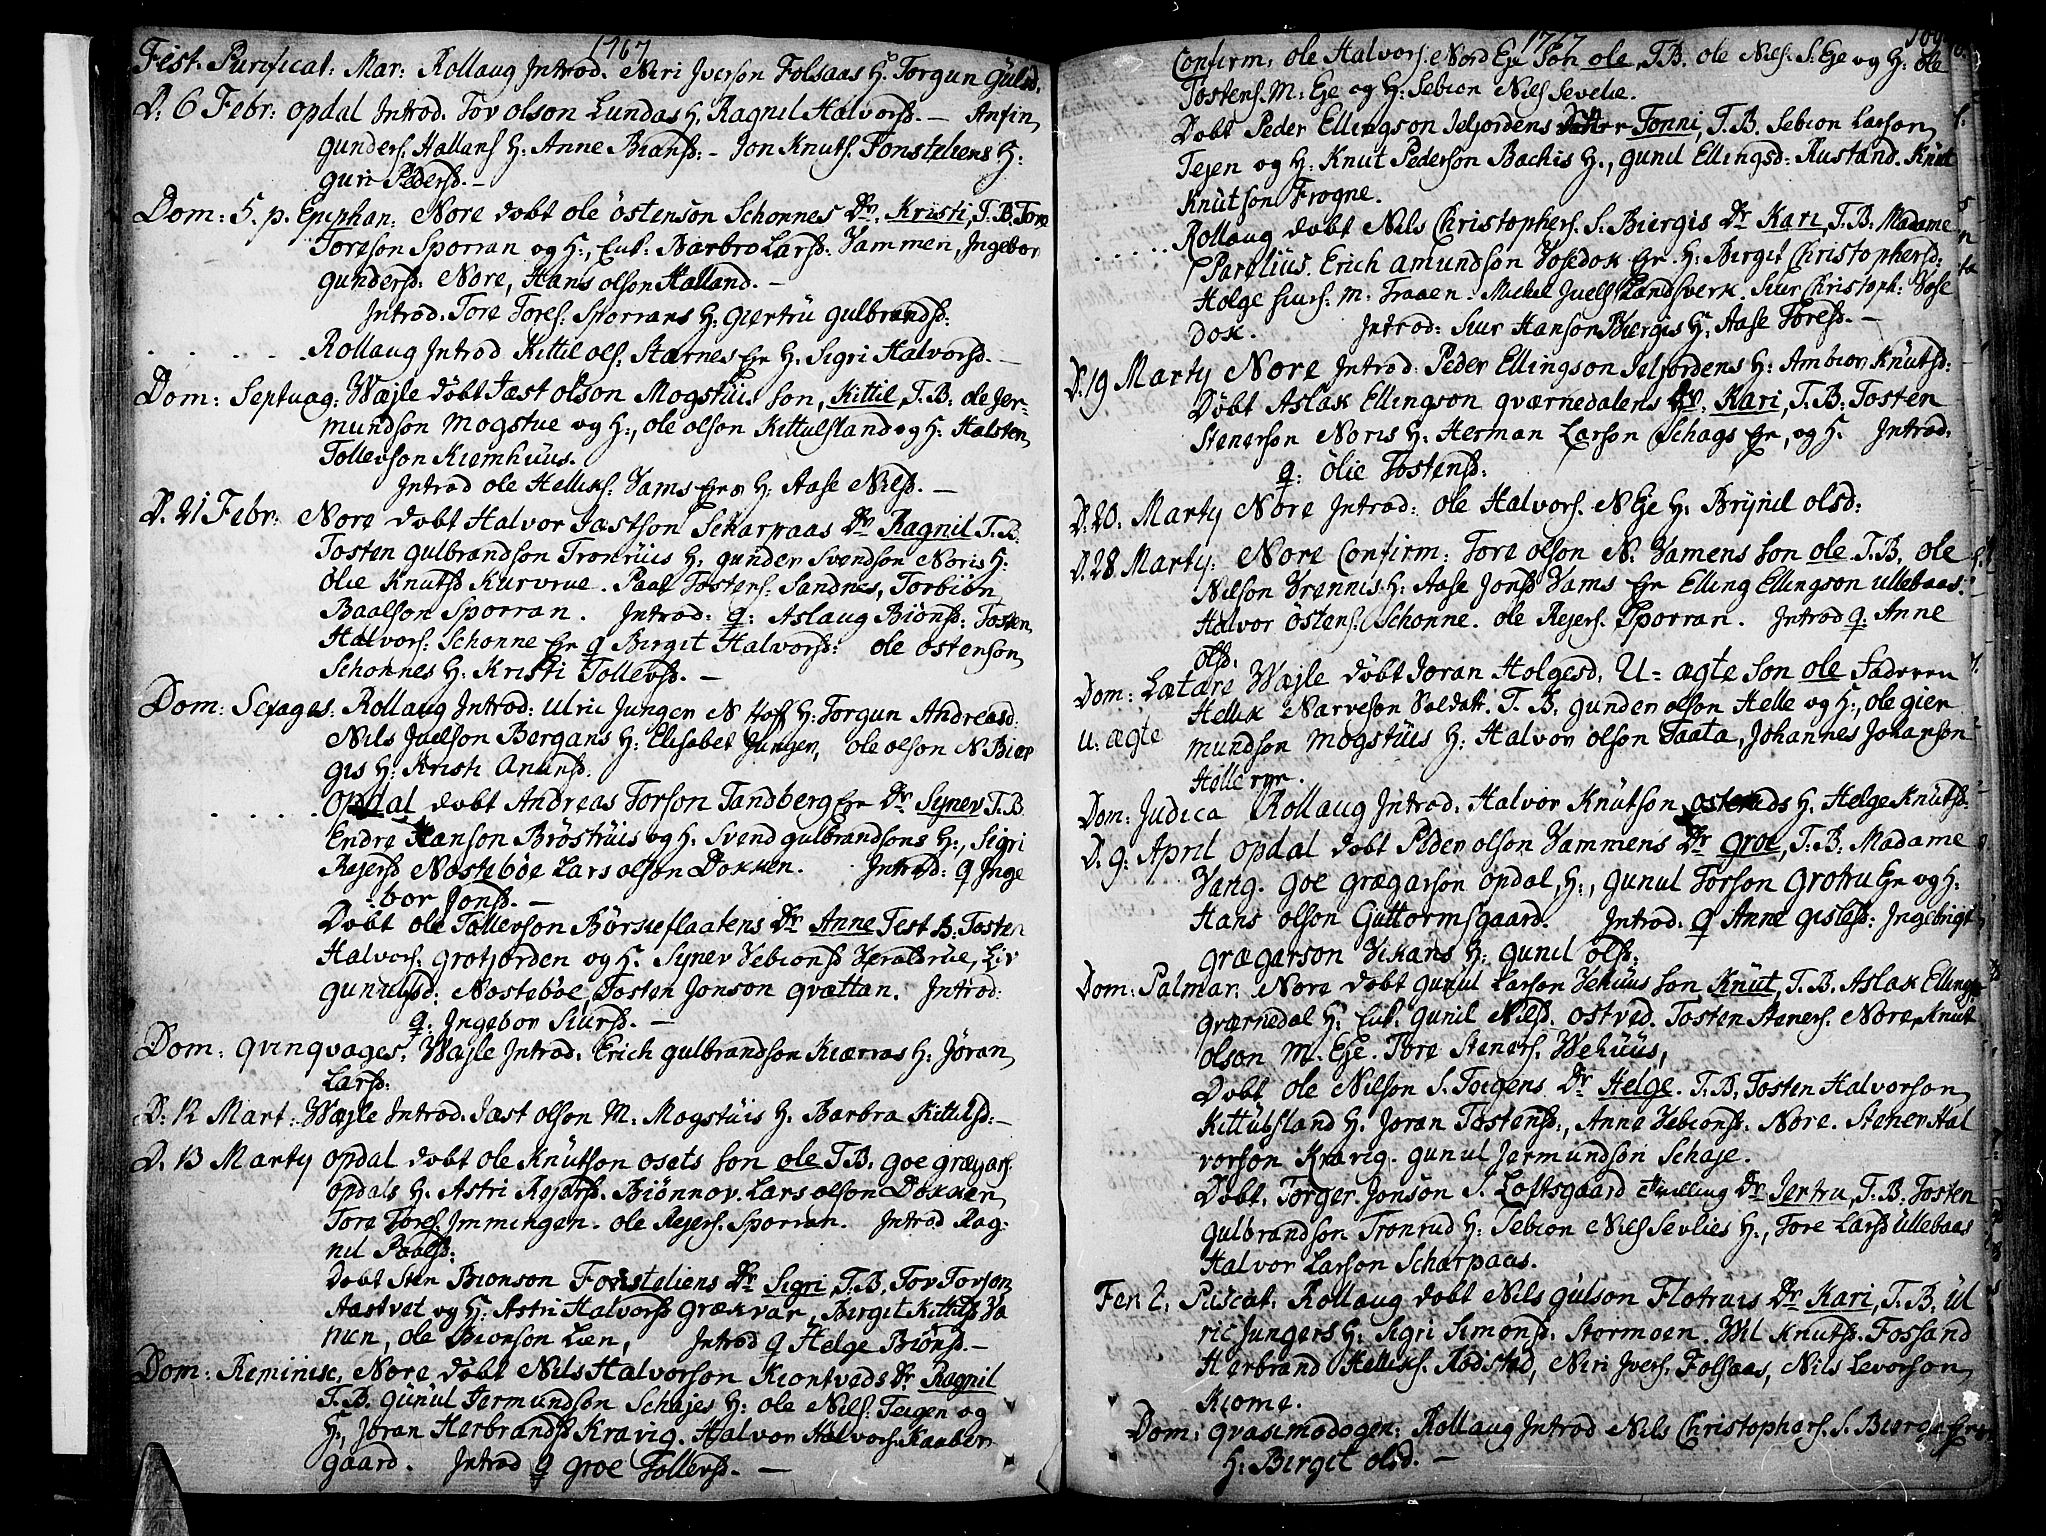 1767
Fest. Purificat: Mar: Rollaug Introd. Niri Iverson Folsaas H. Torgun Gulsd.
D. 6 Febr: Opdal Introd. Tov olson Lundas H. Ragnil Halvorsd. — Anfin
Gunders. Hallans H: Anne Biønsd: – Jon Knuts. Fønsteliens H:
Guri Pedersd. —
Dom: 5. p. Epiphan: Nore døbt ole östenson Schonnes Dr. Kristi, T.B. Tore
Toreson Sporran og H:, Enk: Barbro Larsd. Vammen, Ingebor
Gundersd: Nore, Hans olson Halland. —
Introd. Tore Tores. Sporrans H: Giertru Gulbrandsd:
. . . . . . Rollaug Introd Kittil ols. Stærnes Eje H: Sigri Halvorsd. —
Dom: Septuag: Wæjle døbt Jast olson Mogstuis son, Kittil, T.B: ole Jer-
mundson Mogstue og H:, ole olson Kittulsland og H: Halsten
Tollevson Kiemhuus.
Introd ole Helliks. Vams Eje H: Aase Nilsd. —
D. 21 Febr: Nore døbt Halvor Jastson Scharpaas Dr Ragnil T.B:
Tosten Gulbrandson Tronruis H: Gunder Svendson Noris H:
ölie Knutsd Kurvrue. Paal Tostens. Sandnes, Torbiön
Baalson Sporran. Introd: q: Aslaug Biönsd: Tosten
Halvors. Schonne Eje q Birgit Halvorsd: ole ostenson
Schonnes H: Kristi Tollevsd. —
Dom: Sexages: Rollaug Introd: Ulric Junger N Hoff H: Torgun Andreasd.
Nils Juelson Bergans H: Elisabet Junger, ole olson N. Bier
gis H: Kristi Anunsd.
. . . . . Opdal døbt Andreas Torson Tandberg Eje Dr Synev T.B.
Endre Hanson Bröstruis og H: Svend Gulbrandsons H:, Sigri
Rejersd Nøstebøe Lars olson Dokken. Introd: q Inge
bor Jonsd. —
Døbt ole Tollevson Börsteflaatens Dr Anne Test B: Tosten
Halvors. Grotjorden og H. Synev Vebionsd Heraldrue, Liv
Gunulsd: Nøstebøe, Tosten Jonson Qvættan. Introd:
q: Ingebor Siursd. —
Dom: Qvinqvages. Wajle Introd: Erich Gulbrandson Kiærras H: Jöran
Larsd:
D. 12 Mart: Wæjle Introd. Jast olson M. Mogstuis H: Barbra Kittilsd: —
D. 13 Marty Opdal døbt ole Knutson Osets son ole T.B. Goe Grægars.
Opdals H: Astri Rejersd. Biönnov. Lars olson Dokken
Tore Tores. Immingen. ole Rejers. Sporran. Introd Rag-
nil Paalsd:
Døbt Sten Bionson Fønsteliens Dr Sigri, T.B. Tov Torson
Aastvet og H: Astri Halvorsd Grækvar, Birgit Kittilsd Va
nen, ole Bionson Lien, Introd q Helge Biönsd. —
Dom: Reminisc. Nore, døbt Nils Halvorson Kiontveds Dr. Ragnil
T.B. Gunul Jermundson Schajes H: ole Nils. Teigen og
H:, Jøran Herbrandsd Kravig. Halvor Halvors. Kaaber
gaard. Introd q Groe Tollevsd. —
1767
Confirm: ole Halvors. Nord Eje Søn ole, T.B. ole Nils. S. Eje og H: ole
Tostens. M: Eje og H: Sebion Nils Sevelie.
Døbt Peder Ellingson Seljordens Dotter Tonni, T.B. Sebion Larson
Tejen og H: Knut Pederson Bachis H:, Gunil Ellingsd: Rustand. Knut
Knutson Frogne.
. . . . . Rollaug døbt Nils Christophers. S. Biergis Dr Kari, T.B: Madame
Parelius. Erich Amundson Vosedok Eje H: Birgit Christophersd:
Holge Siurs: M. Traaen. Michel Juels Landsverk. Siur Christoph: Vose
dok. Introd: Siur Hanson Biergis H: Aase Toresd. —
D. 19 Marty Nore Introd: Peder Ellingson Seljordens H: Ambior Knutsd:
Døbt Aslak Ellingson Qværnedalens Dr. Kari, T.B: Tosten
Stenerson Noris H: Herman Larson Schags Eje, og H. Introd.
q: ölie Tostensd:
D. 20. Marty Nore Introd: ole Halvors. N Eje H: Brynil olsd:
D. 28 Marty: Nore Confirm: Tore olson N. Vamens son ole, T.B, ole
Nilson Vrennis H: Aase Jonsd Vams Eje Elling Ellingson Ullebaas.
Halvor östens: Schonne. ole Rejers. Sporran. Introd q. Anne
olsd.
Dom: Lætare Wæjle døbt Joran Holgesd. U-ægte son ole Faderen
Hellik Narveson Soldatt. T.B. Gunder olson Helle og H:, ole Gier
u: ægte mundson Mogstuis H: Halvor olson Taata, Johannes Johanson
Helle eje.
Dom: Judica Rollaug Introd. Halvor Knutson osterads H. Helge Knutsd.
D. 9: April Opdal døbt Peder olson Vammens Dr Groe, T.B: Madame
Vang. Goe Grægarson Opdal, H:, Gunul Torson Grotru Eje og H:
Hans olson Guttormsgaard. Introd. q Anne Gislesd: Ingebrigt
Grægarson Vikans H: Gunil olsd.
Dom: Palmar: Nore døbt Gunul Larson Vehuus son Knut, T.B. Aslak Ellings
Qværnedal H: Enk. Gunil Nilsd. Ostved. Tosten Steners. Nore, Knut
olson M. Eje. Tore Steners. Wehuus,
Døbt ole Nilson S. Teigens Dr Helge. T.B. Tosten Halvorson
Kittulsland H: Joran Tostensd:, Anne Vebionsd: Nore. Stener Hal
vorson Kravig. Gunul Jermundson Schaje.
Døbt. Torger Jonson S. Loftsgaard Tvilling Dr Jertru, T.B. Tosten
Gulbrandson Tronrud H: Sebion Nils Sevlies H:, Tore Larsd Ullebaas
Halvor Larson Scharpaas.
Fer. 2. Pascat. Rollaug døbt Nils Gulson Flotruis Dr Kari, T.B. Ul
ric Jungers H: Sigri Simonsd. Stormoen. Wil Knutsd. Fossand
Herbrand Helliks. Rodstad, Niri Ivers. Folsaas, Nils Levorson
Kiome.
Dom: Qvasimodogen: Rollaug Introd Nils Christophers. S. Bierge Eje
H: Birgit olsd. —